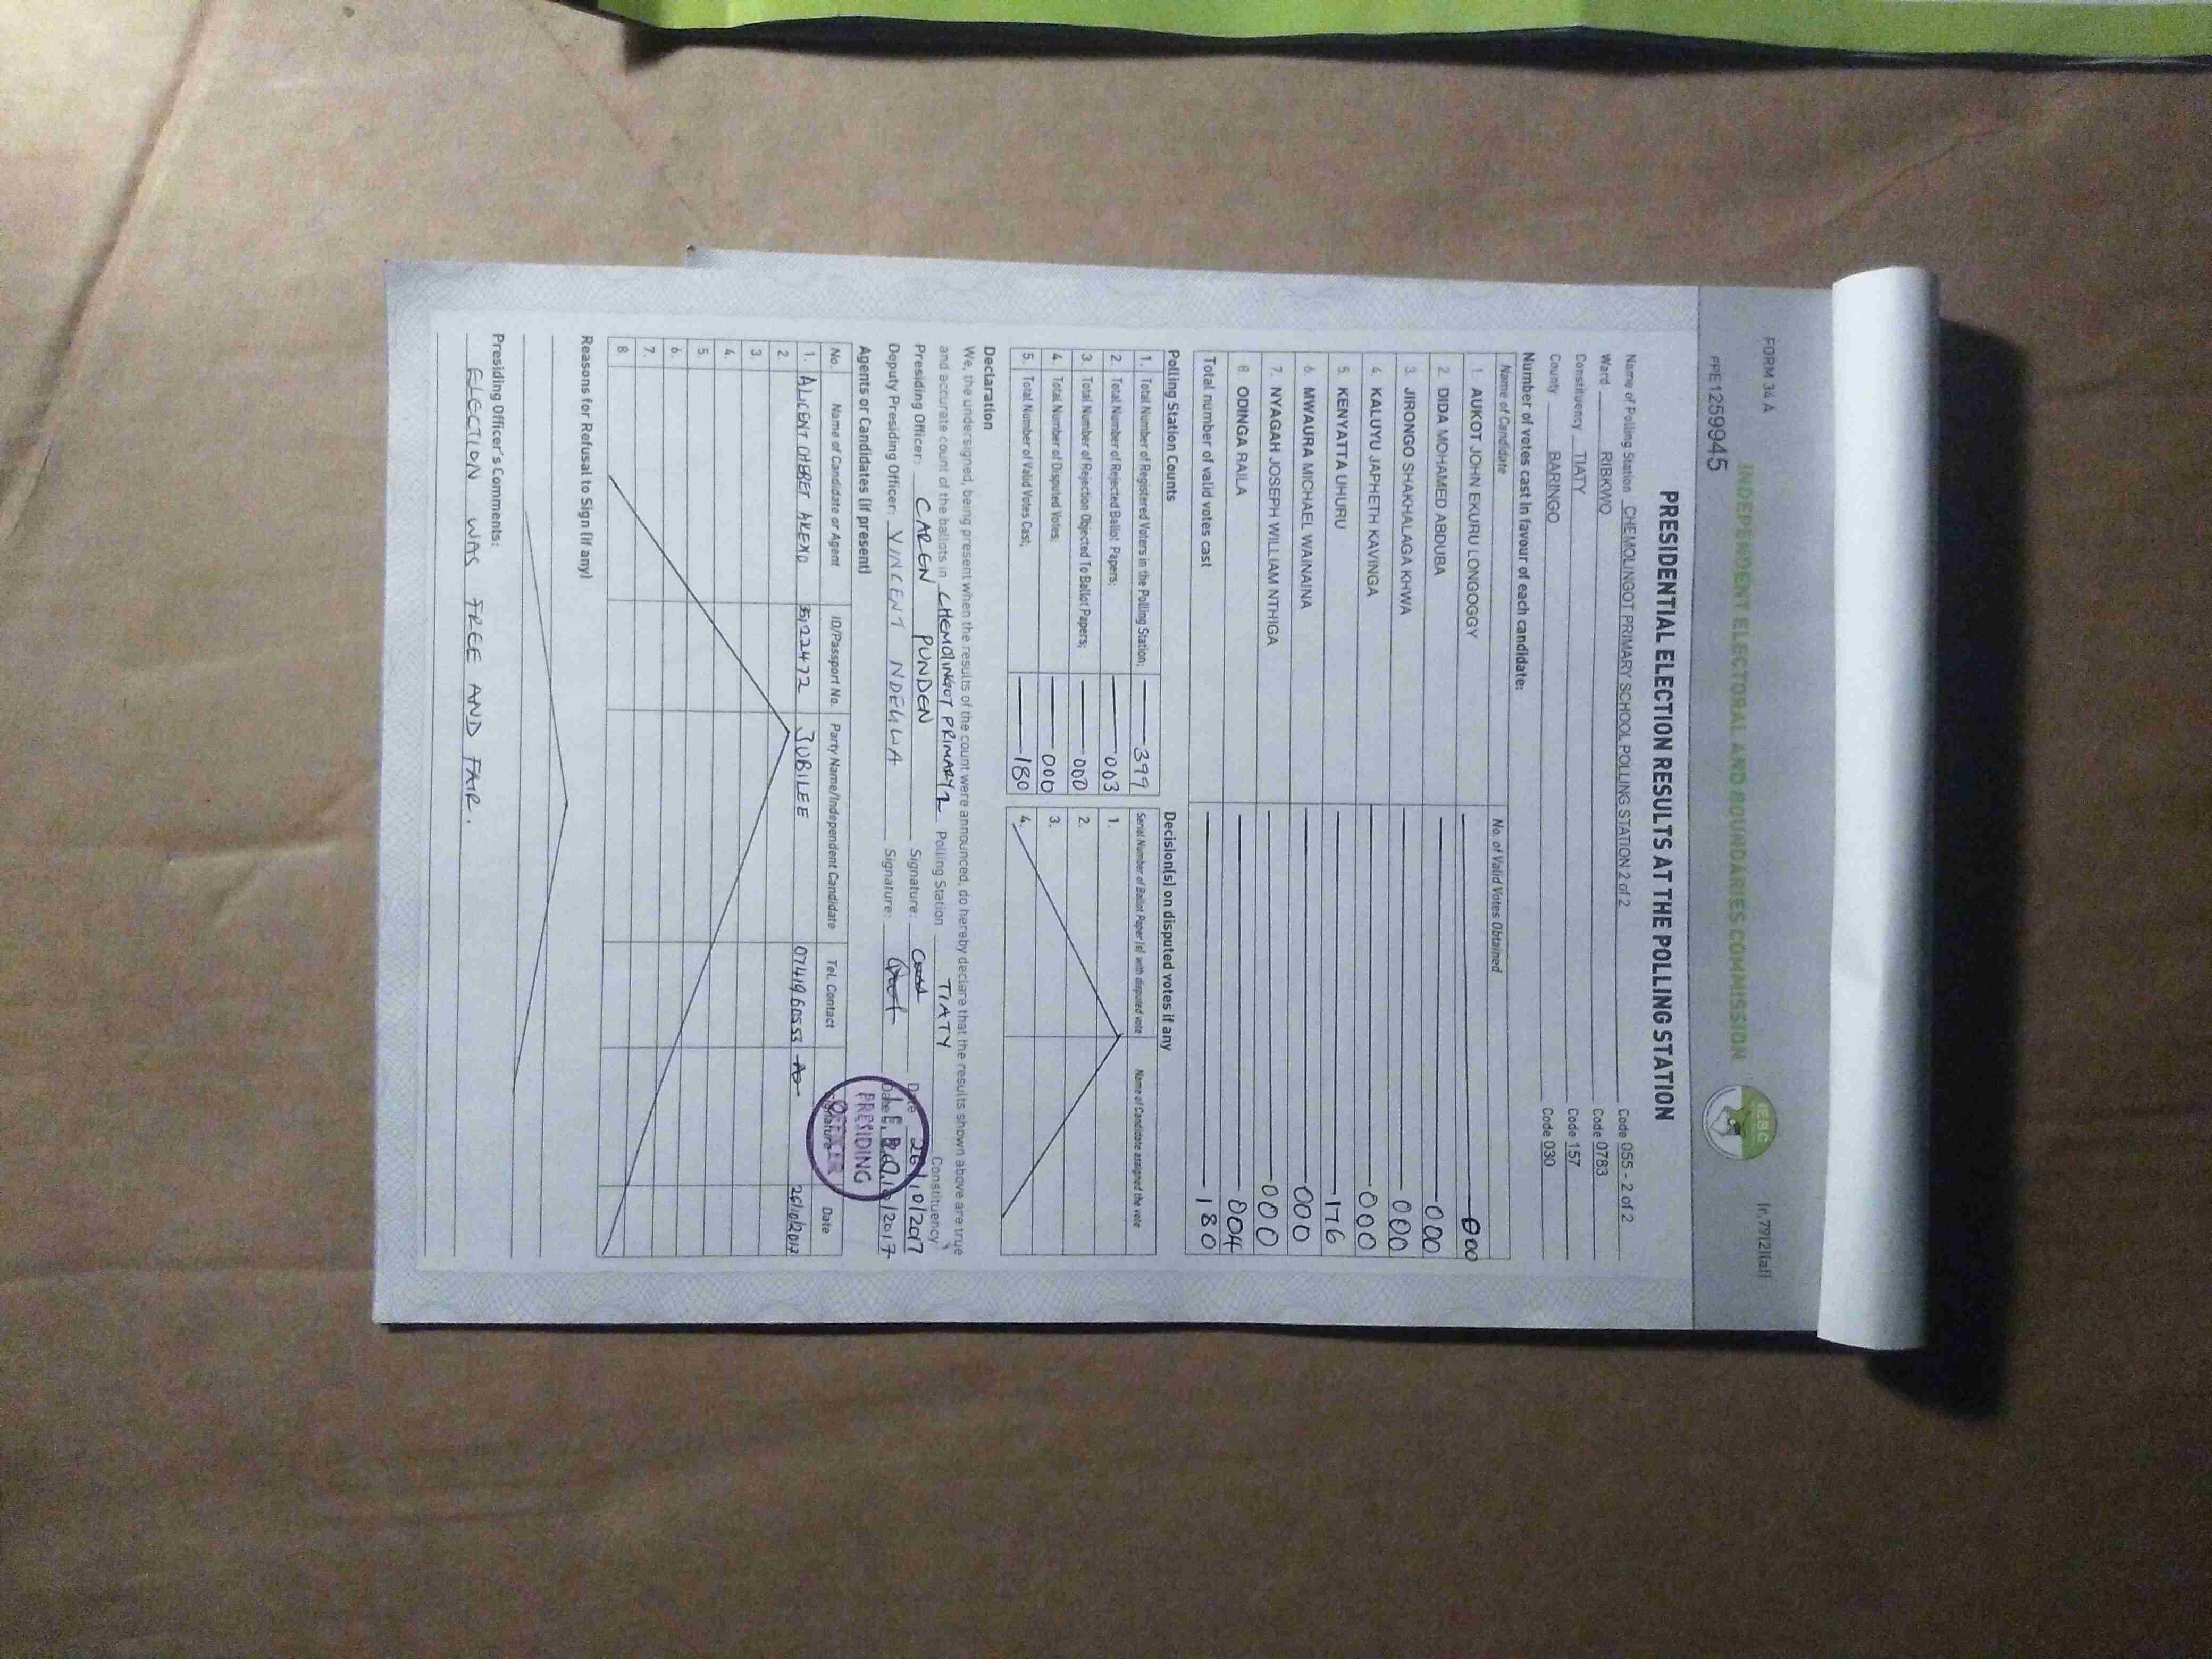 FORM 34 A
(r.79(2)(a))
INDEPENDENT ELECTORAL AND BOUNDARIES COMMISSION
IEBC
PPE1259945
PRESIDENTIAL ELECTION RESULTS AT THE POLLING STATION
Name of Polling Station CHEMOLINGOT PRIMARY SCHOOL POLLING STATION 2 of 2 Code 055 - 2 of 2
Ward RIBKWO Code 0783
Constituency TIATY Code 157
County BARINGO Code 030
Number of votes cast in favour of each candidate:
Name of Candidate No. of Valid Votes Obtained
1. AUKOT JOHN EKURU LONGOGGY 000
2. DIDA MOHAMED ABDUBA 000
3. JIRONGO SHAKHALAGA KHWA 000
4. KALUYU JAPHETH KAVINGA 000
5. KENYATTA UHURU 176
6. MWAURA MICHAEL WAINAINA 000
7. NYAGAH JOSEPH WILLIAM NTHIGA 000
8. ODINGA RAILA 004
Total number of valid votes cast 180
Polling Station Counts
1. Total Number of Registered Voters in the Polling Station; 399
2. Total Number of Rejected Ballot Papers; 003
3. Total Number of Rejection Objected To Ballot Papers; 000
4. Total Number of Disputed Votes; 000
5. Total Number of Valid Votes Cast; 180
Decision(s) on disputed votes if any
Serial Number of Ballot Paper (s) with disputed vote Name of Candidate assigned the vote
1.
2.
3.
4.
Declaration
We, the undersigned, being present when the results of the count were announced, do hereby declare that the results shown above are true
and accurate count of the ballots in CHEMOLINGOT PRIMARY 2 Polling Station TIATY Constituency
Presiding Officer: CAREN PUNDEN Signature: Date 26/10/2017
Deputy Presiding Officer: VINCENT Signature: Date /2017
PRESIDING
OFFICER
Agents or Candidates (if present)
No. Name of Candidate or Agent ID/Passport No. Party Name/Independent Candidate Tel. Contact Signature Date
1. ALICENT JUBILEE 0741960553 26/10/2017
2.
3.
4.
5
6.
7.
8
Reasons for Refusal to Sign (if any)
Presiding Officer's Comments:
ELECTION WAS FREE AND FAIR.